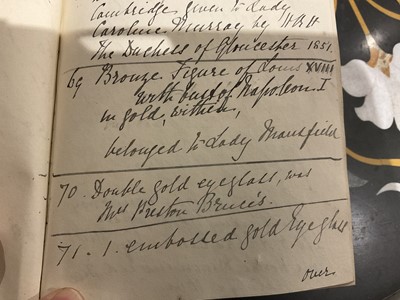 Cambridge given to Lady
Caroline Murray by H.R.H
The Duchess of Gloucester 1851.
69 Bronze Figure of Louis XVIII
with bust of Napoleon I
in gold, within,
belonged to Lady Mansfield
70. Double gold eyeglass, was
Mrs Preston Bruce's.
71. 1. embossed gold Eyeglass
over